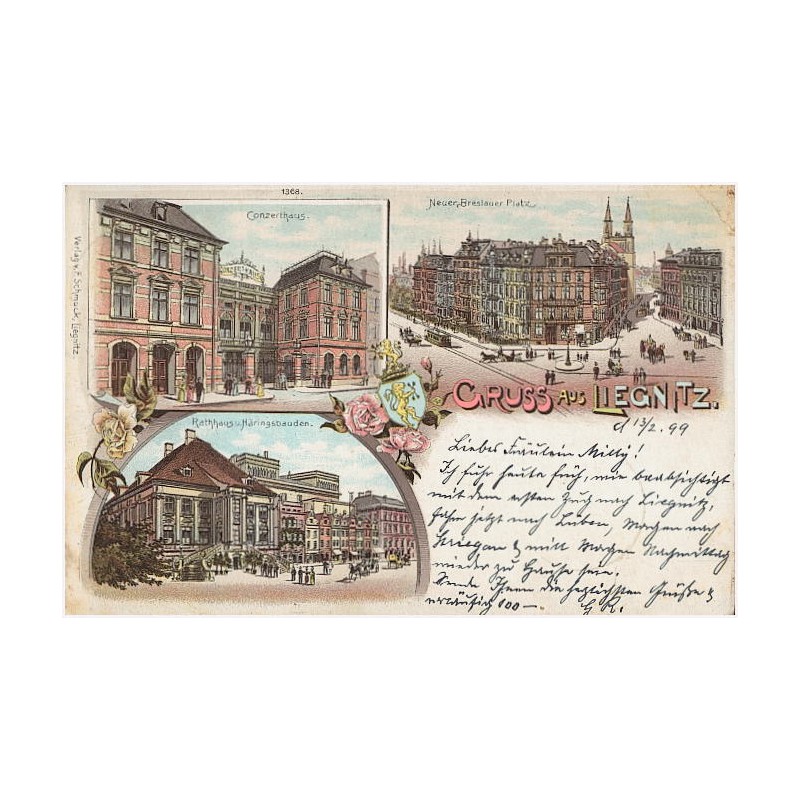 1368.
Conzerthaus.
Neuer Breslauer Platz
Verlag v. E. Schmuck, Liegnitz.
GRUSS AUS LIEGNITZ.
Rathhaus u. Häringsbauden.
d 13/2. 99
Liebes Fräulein Milly!
Ich fuhr heute früh, wie beabsichtigt
mit dem ersten Zug nach Liegnitz,
fahre jetzt nach Lüben, Morgen nach
Striegau & will Morgen Nachmittag
wieder zu Hause sein.
Sende Ihnen die herzlichsten Grüße &
vorläufig 100 —